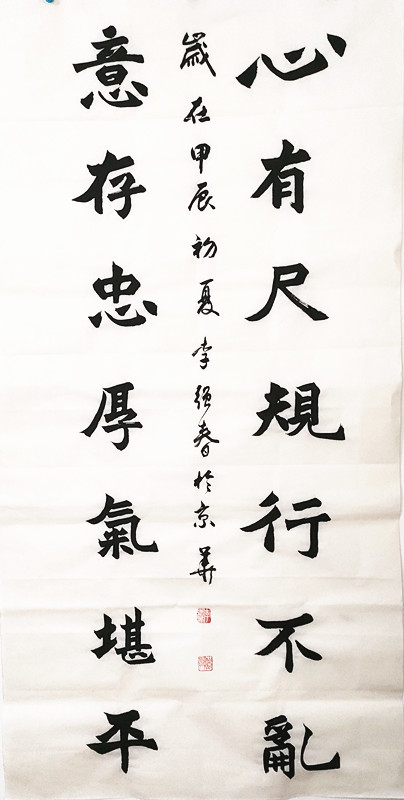 心有尺規行不亂
歲在甲辰初夏李强春於京華
意存忠厚氣堪平